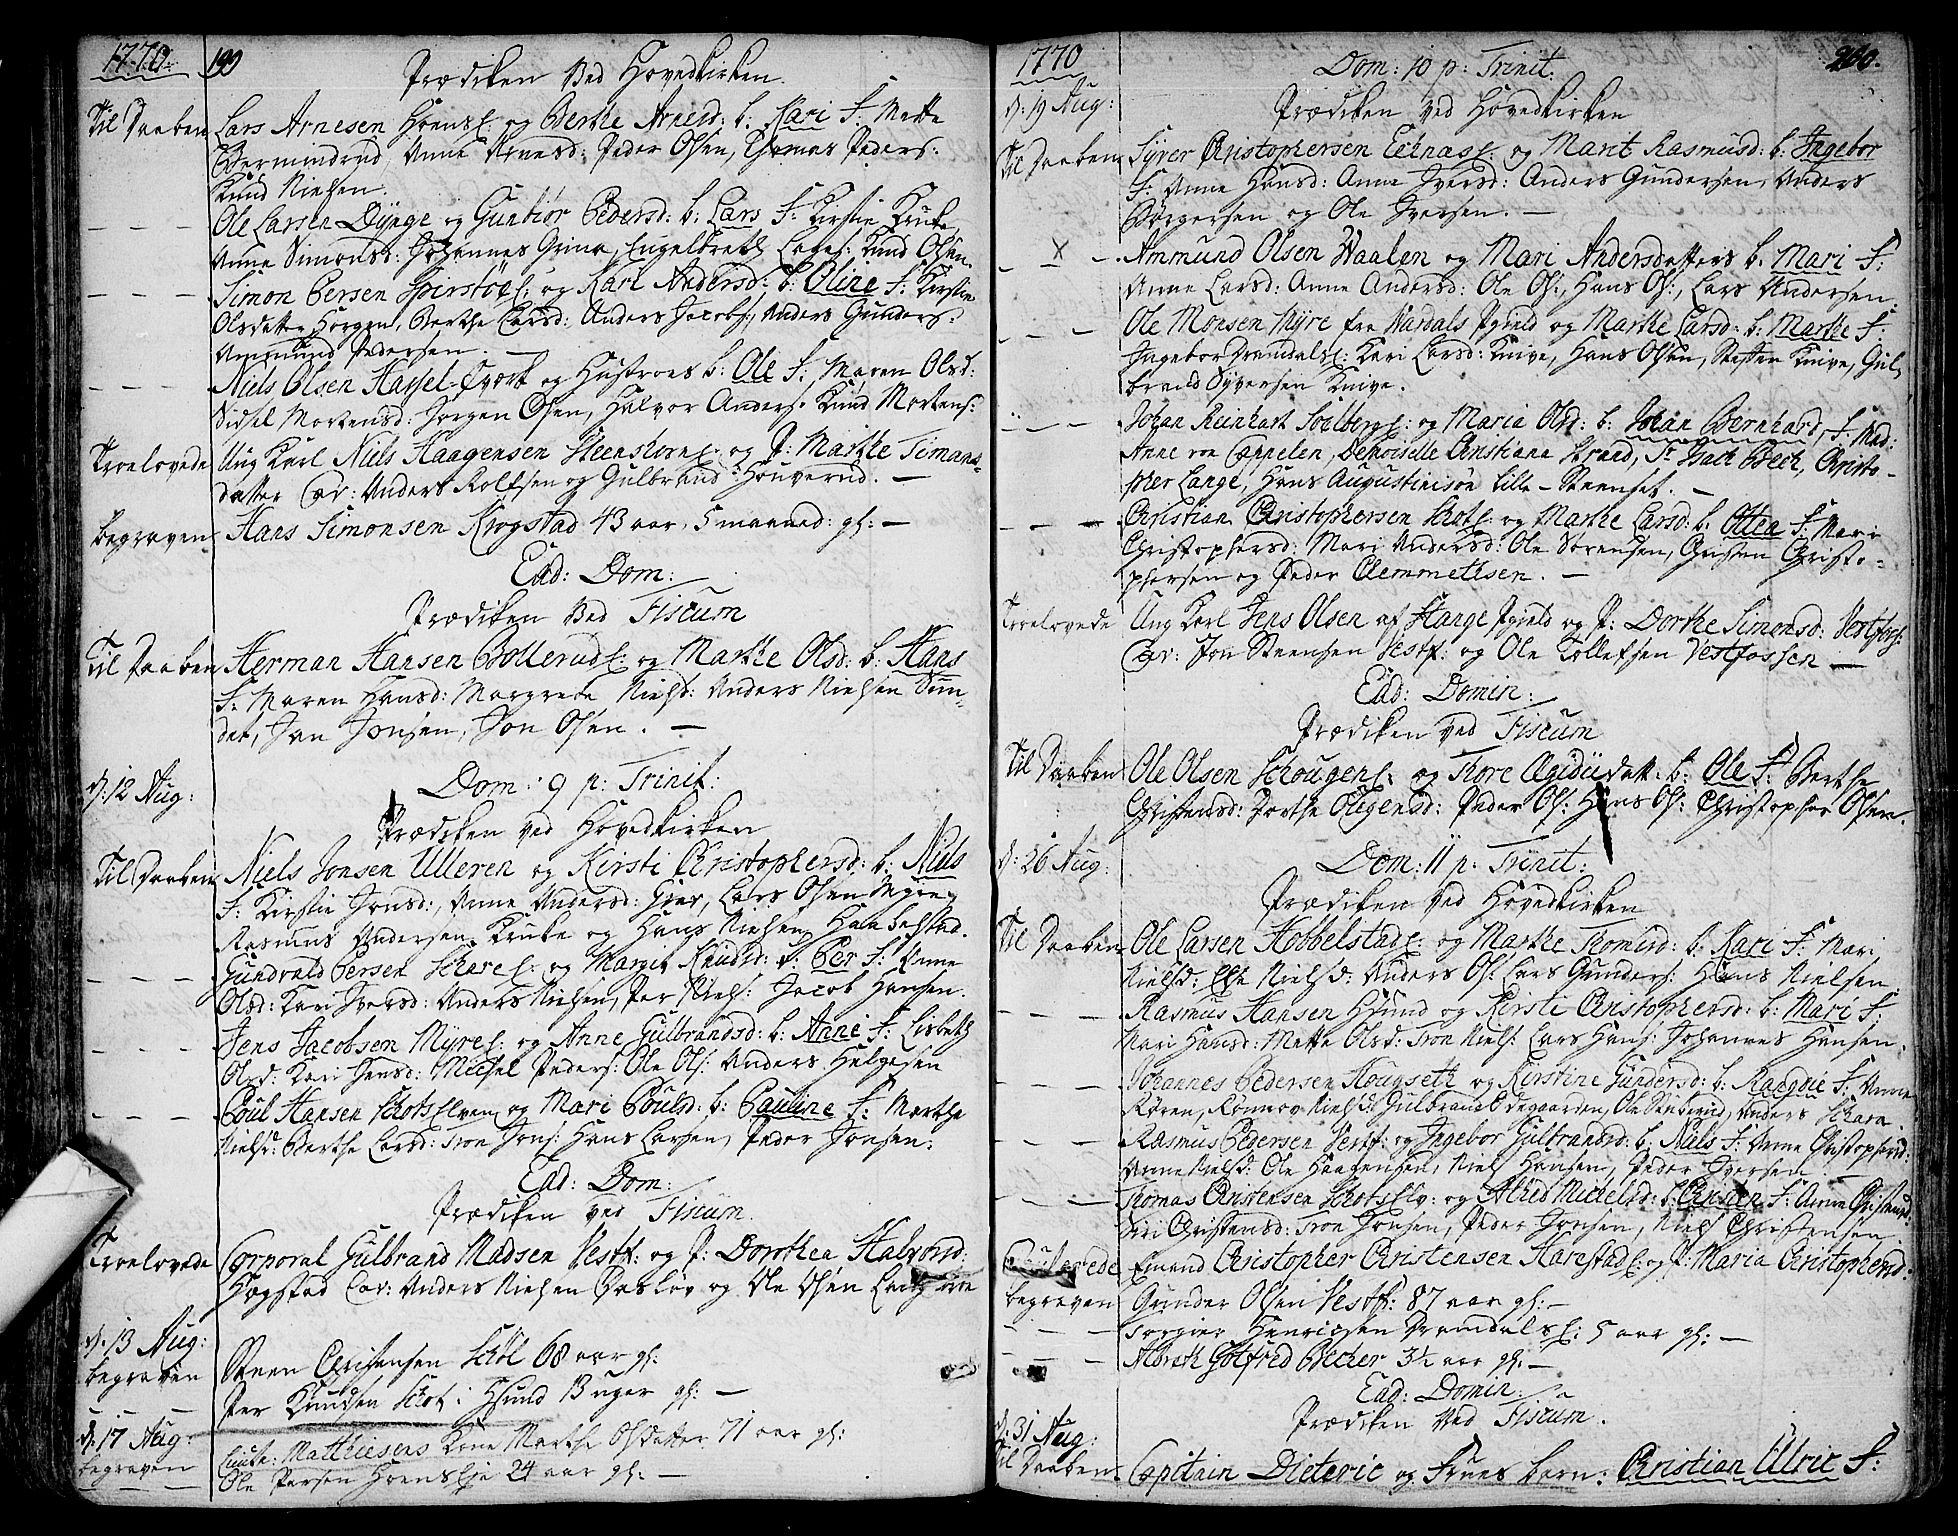 1770. 199
Prædiken Ved Hovedkirken
Til Daaben Lars Arnesen Hornse: og Berthe Arnesd: b: Kari F: Mette
Anne Arnesd: Peder Olsen, Thomas Peders:
Knud Nielsen.
- - - Ole Larsen Dynge og Guntior Pedersd: b: Lars F: Kirstie Kruke
Anne Simonsd: Johannes Grina, Engelbreth Lares: Knud Olsen
- - - Simon Persen og Kari Andersd: b: Oline F: Kirstie
Olsdatter Horgen, Berthe Larsd: Anders Jacobs:, Anders Gunders:
Ammund Pedersen
- - - Niels Olsen Hassel-Værk og Hustroes b: Ole F: Maren Olsd:
Sidsel Mortensd: Jørgen Olsen, Halvor Anders: Knud Mortens:
Troelovede Ung Karl Niels Haagensen og P: Marthe Simons-
datter Cav: Anders Rolfsen og Gulbrand Houverud. -
Begraven Hans Simonsen Krogstad 43 aar, 5 maaned: gl: -
Ead: Dom:
Prædiken Ved Fiscum
Til Daaben Herman Hansen Bollerude: og Marthe Olsd: b: Hans
F: Maren Hansd: Margrede Nielsd: Anders Nielsen Sun-
det, Jan Jonsen, Jon Olsen. -
d: 12 Aug: Dom: 9 p: Trinit:
Prædiken ved Hovedkirken
Til Daaben Niels Jonsen Ulleren og Kirsti Christophersd: b: Niels
F: Kirstie Jonsd:, Anne Andersd: Lars Olsen
Rasmus Andersen Kruke og Hans Nielsen Haabelstad.
- - - Gundvald Persen Skare: og Margit Knudsd: b: Per F: Anne
Olsd: Kari Iversd: Anders Nielsen, Per Niels: Jacob Hansen.
- - - Jens Jacobsen Myre: og Anne Gulbrandsd: b: Anne F: Lisbeth
Olsd: Kari Jensd: Michel Peders: Ole Ols: Anders Helgesen
- - - Poul Hansen Skotselven og Mari Poulsd: b: Pauline F: Marthe
Nielsd: Berthe Larsd: Tron Jons: Hans Larsen, Peder Jonsen.
Ead: Dom:
Prædiken ved Fiscum.
Troelovede Corporal Gulbrand Madsen Vestf: og P: Dorthea Halvorsd:
Hogstad Cav: Anders Nielsen og Ole Olsen
d: 13 Aug:
begraven Steen Christensen Schøl 68 aar gl:
- - - Per Knudsen Skot i Hsund 13 uger gl: -
d: 17 Aug:
begraven Mathiesens Kone Marthe Olsdatter 71 aar gl:
- - - Ole Persen Horens Eje 24 aar gl: -
1770 200.
Dom: 10 p: Trinit:
d: 19 Aug: Prædiken ved Hovedkirken
Til Daaben Syver Christophersen Eknase: og Marit Rasmusd: b: Ingebor
F: Anne Hansd: Anne Iversd: Anders Gundersen, Anders
Børgersen og Ole Iversen. -
- X - Ammund Olsen Waalen og Mari Andersdatters b: Mari F:
Anne Larsd: Anne Andersd: Ole Ols:, Hans Ols:, Lars Andersen.
- - Ole Monsen Myre fra Wardals Pgield og Marthe Larsd: b: Marthe F:
Ingebor Dramdals: Kari Larsd: Knive, Hans Olsen, Steffen Knive, Gul
brand Syversen Knive.
- - - Johan Reinhart Soelberg: og Maria Olsd: b: Johan Bernhard F: Mad:
Anne von Cappelen, Demoiselle Christiane Strand, Sr Isach Bech, Christo-
pher Lange, Hans Augustinisøn Lille-Steenset. -
- - - Christian Christophersen Skot: og Marthe Larsd: b: Otten F: Mari
Christophersd: Mari Andersd: Ole Sørensen, Christen Christo-
phersen og Peder Clemmetsen. -
Troelovede Ung Karl Jens Olsen af Stange Pgield og P: Dorthe Simonsd: Vestfos:
Cav: Jon Steensen Vestf: og Ole Tollefsen Vestfossen -
Ead: Domin:
Prædiken ved Fiscum
Til Daaben Ole Olsen Skougen: og Thore Ægidii datt: b: Ole F: Berthe
Christensd: Dorthe Peder Ols: Hans Ols: Christopher Olsen.
d: 26 Aug: Dom: 11 p: Trinit:
Prædiken ved Hovedkirken
Til Daaben Ole Larsen Hobbelstad: og Marthe Thomesd: b: Kari F: Mari
Nielsd: Else Nielsd: Anders Ols: Lars Gunders: Hans Nielsen.
- - - Rasmus Hansen Hsund og Kirsti Christophersd: b: Mari F:
Mari Hansd: Mette Olsd: Tron Niels: Lars Hans: Johannes Hansen.
- - - Johannes Pedersen Hougseth og Kirstine Gundersd: b: Rangdie F: Anne
Røren, Rønnov Nielsd: Gulbrand Ødegaarden, Ole Anders Skara.
- - - Rasmus Pedersen Vestf: og Ingebor Gulbrandsd: b: Niels F: Anne Christophersd:
Anne Nielsd: Ole Haagensen, Niels Hansen, Peder Iversen -
- - - Thomas Christensen Skotselv: og Alhed Michelsd: b: Christen F: Anne Christensd:
Siri Christensd: Tron Jonsen, Peder Jonsen, Niels Christensen.
Enkemand Christopher Christensen Harestad: og P: Maria Christophersd:
begraven Gunder Olsen Vestf: 87 aar gl: -
- - - Torgier Henricsen Dramdals: 5 aar gl: -
- - - Albreth Gotfred Becher 3½ aar gl: -
Ead: Domin:
Prædiken Ved Fiscum.
d: 31 Aug:
Til Daaben Capitain Dieteric og Frues barn: Christian Ulric F: